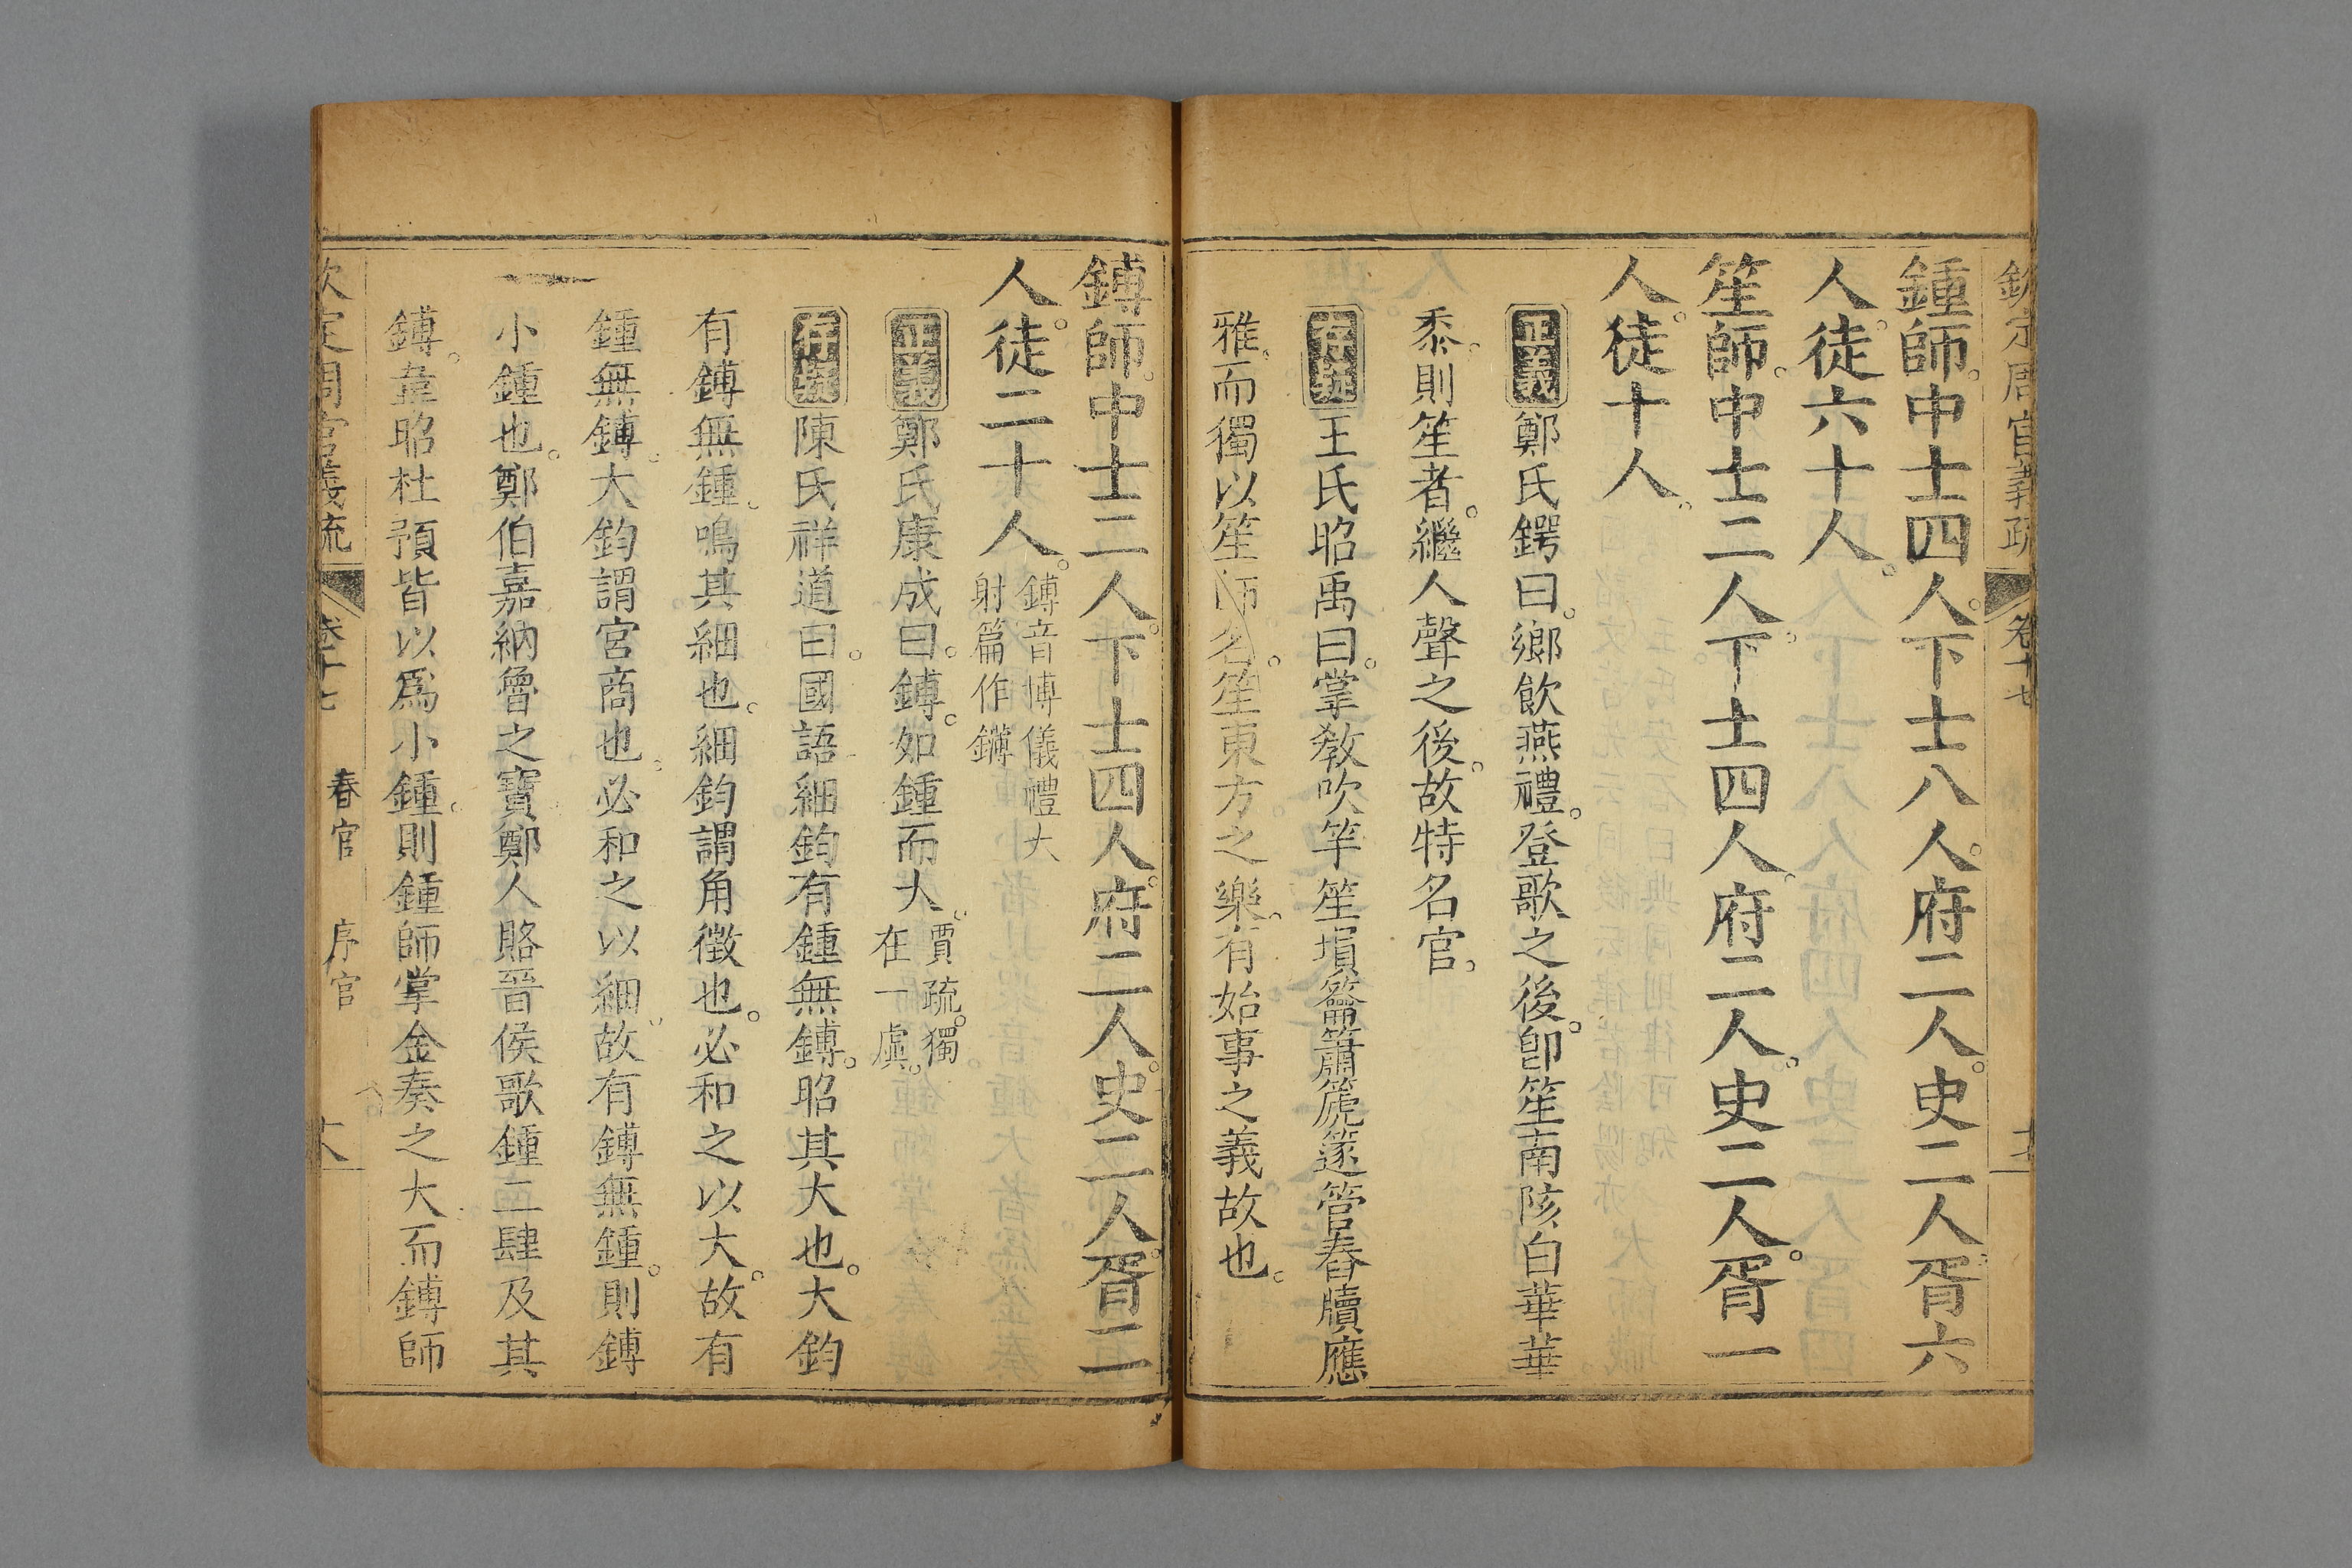 欽定周官義疏 卷十七
鍾師。中士四人。下士八人。府二人。史二人。胥六
人。徒六十人。
笙師。中士二人。下士四人。府二人。史二人。胥一
人。徒十人。
正義鄭氏鍔曰。鄉飲燕禮。登歌之後。卽笙南陔白華華
黍。則笙者。繼人聲之後。故特名官。
存疑王氏昭禹曰。掌敎吹竽笙塤籥簫篪篴管舂牘應
雅。而獨以笙師名。笙東方之樂。有始事之義故也。
鎛師。中士二人。下士四人。府二人。史二人。胥二
人。徒二十人。
鎛音博儀禮大
射篇作鑮
正義鄭氏康成曰。鎛。如鍾而大。
賈疏。獨
在一虡。
存疑陳氏祥道曰。國語細鈞有鍾無鎛。昭其大也。大鈞
有鎛無鍾。鳴其細也。細鈞謂角徵也。必和之以大。故有
鍾無鎛。大鈞謂宮商也。必和之以細。故有鎛無鍾。則鎛
小鍾也。鄭伯嘉納魯之寶鄭人賂晉侯歌鍾二肆及其
鎛。韋昭杜預皆以爲小鍾。則鍾師掌金奏之大而鎛師
欽定周官義疏 卷十七 春官 序官